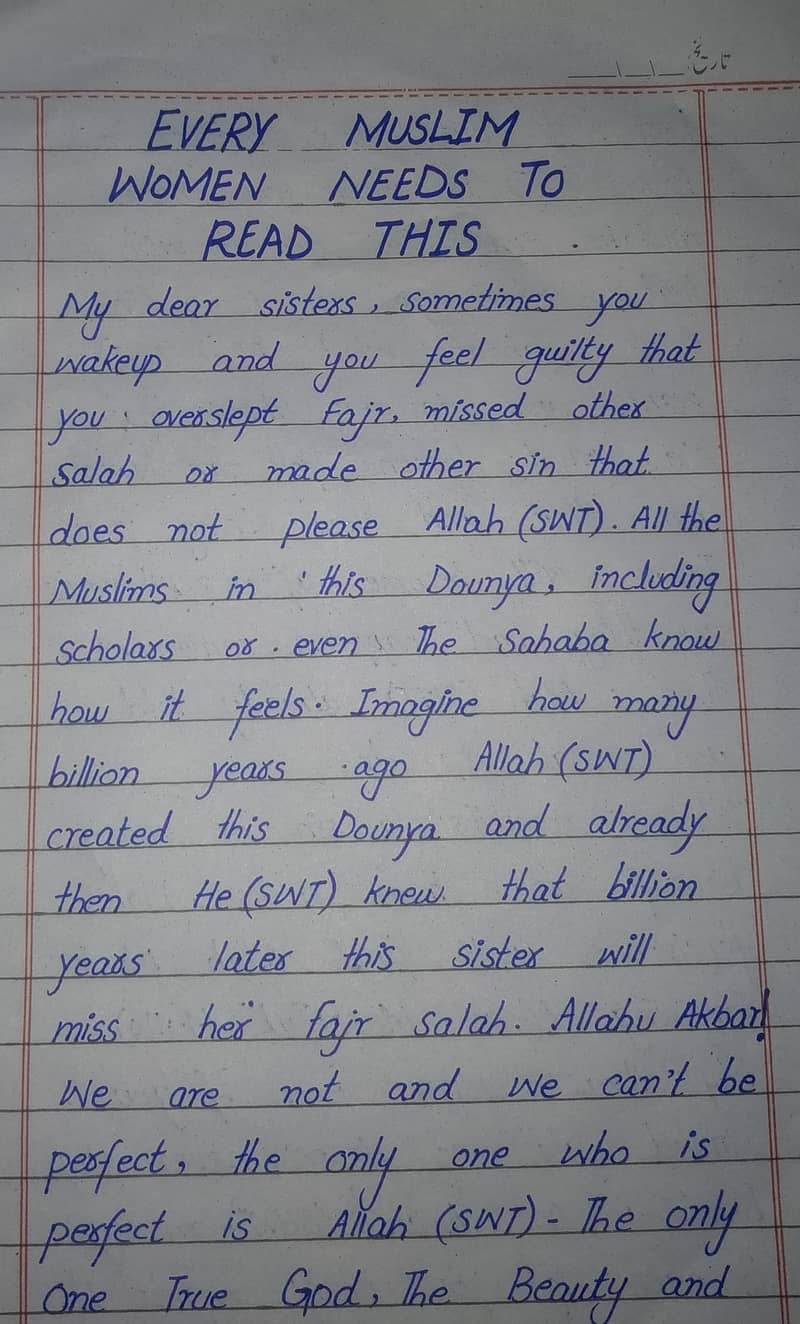 تاریخ __\__\__
EVERY MUSLIM
WOMEN NEEDS TO
READ THIS
My dear sisters, sometimes you
wakeup and you feel guilty that
you overslept Fajr, missed other
Salah or made other sin that
does not please Allah (SWT). All the
Muslims in this Dounya, including
scholars or even The Sahaba know
how it feels. Imagine how many
billion years ago Allah (SWT)
created this Dounya and already
then He (SWT) knew that billion
years later this sister will
miss her fajr salah. Allahu Akbar!
We are not and we can't be
perfect, the only one who is
perfect is Allah (SWT) - The only
One True God, The Beauty and